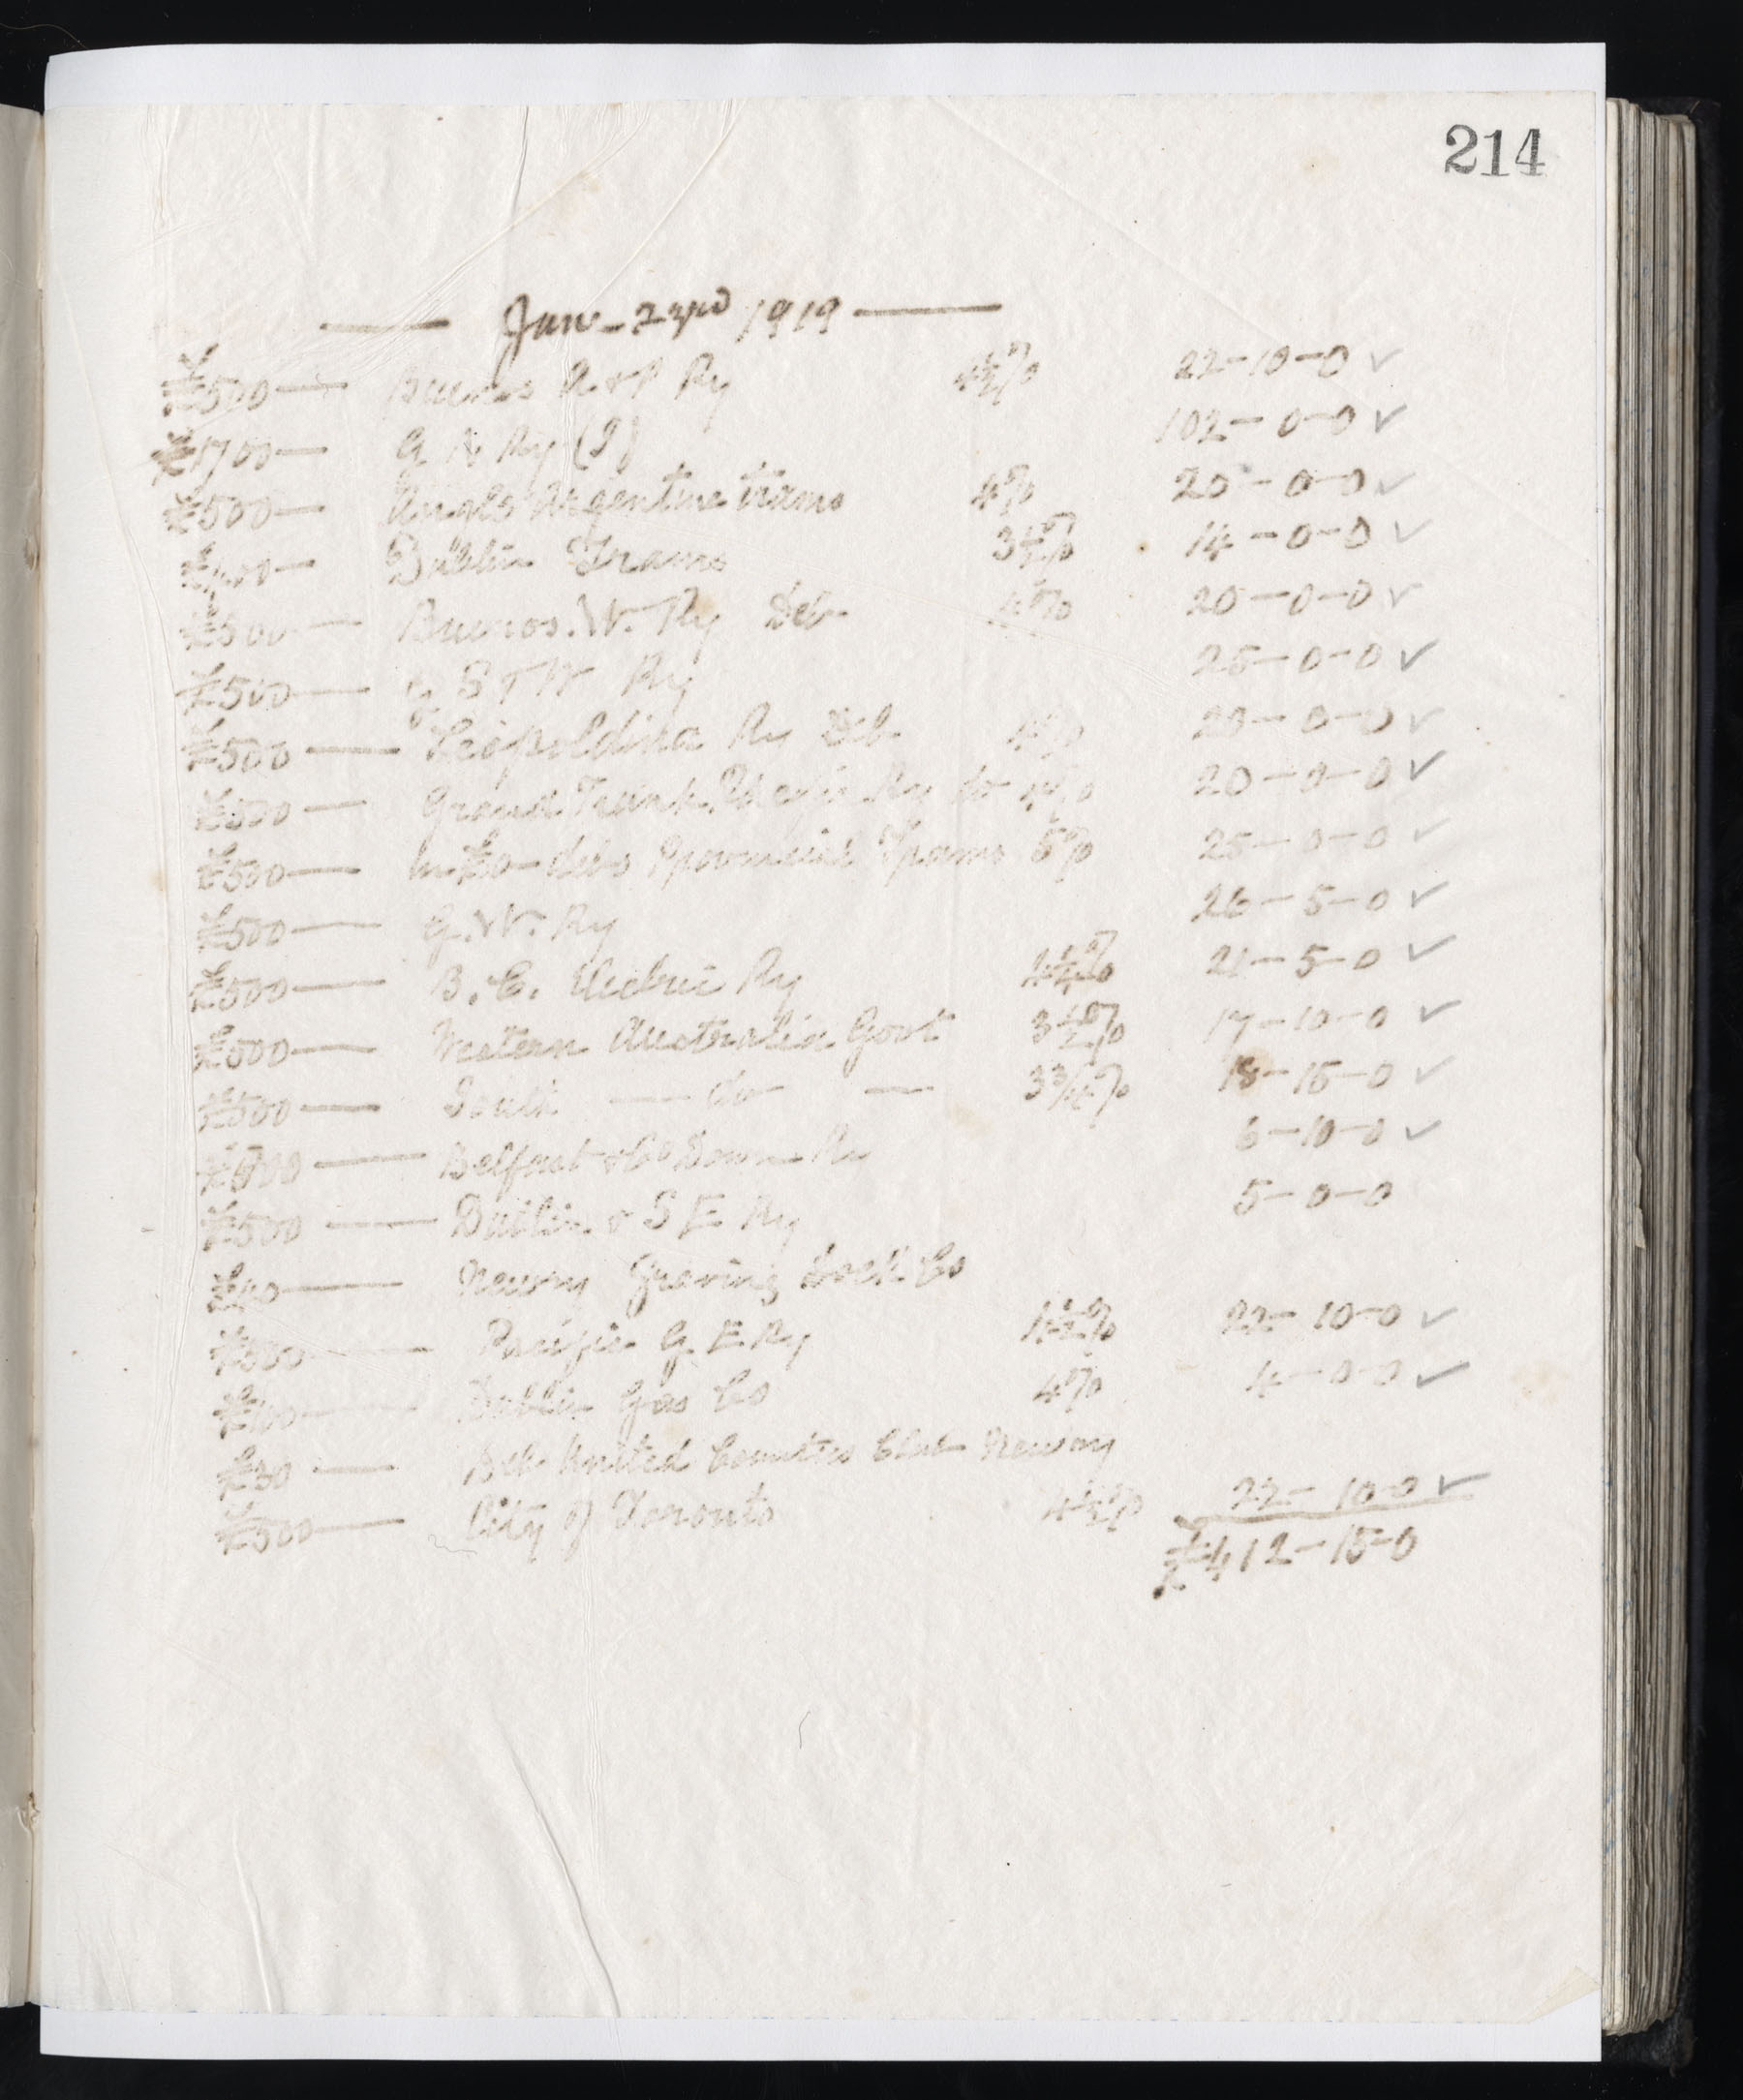 214
— Jan- 23rd 1919 —
£500 — Buenos A & P Ry 4½% 22-10-0 ✓
£1700 — G N Ry (I) 102-0-0 ✓
£500 — Anglo Argentine trams 4% 20-0-0 ✓
£400 — Dublin Trams 3½% 14-0-0 ✓
£500 — Buenos. W. Ry Deb 4% 20-0-0 ✓
£500 — G S & W Ry 25-0-0 ✓
£500 — Leopoldina Ry Deb 4% 20-0-0 ✓
£500 — Grand Trunk Pacific Ry do 4% 20-0-0 ✓
£500 — debs Provincial Trams 5% 25-0-0 ✓
£500 — G. W. Ry 26-5-0 ✓
£500 — B. C. Electric Ry 4¼% 21-5-0 ✓
£500 — Western Australia Govt 3½% 17-10-0 ✓
£500 — South — do — 3¾% 18-15-0 ✓
Belfast & Co Down Ry 6-10-0 ✓
£500 — Dublin & S E Ry 5-0-0
£40 — Newry Graving Dock Co
£500 — Pacific G. E Ry 4½% 22-10-0 ✓
£100 — Dublin Gas Co 4% 4-0-0 ✓
£30 — Deb United Counties Club Newry
£500 — City of Toronto 4½% 22-10-0 ✓
£412-15-0